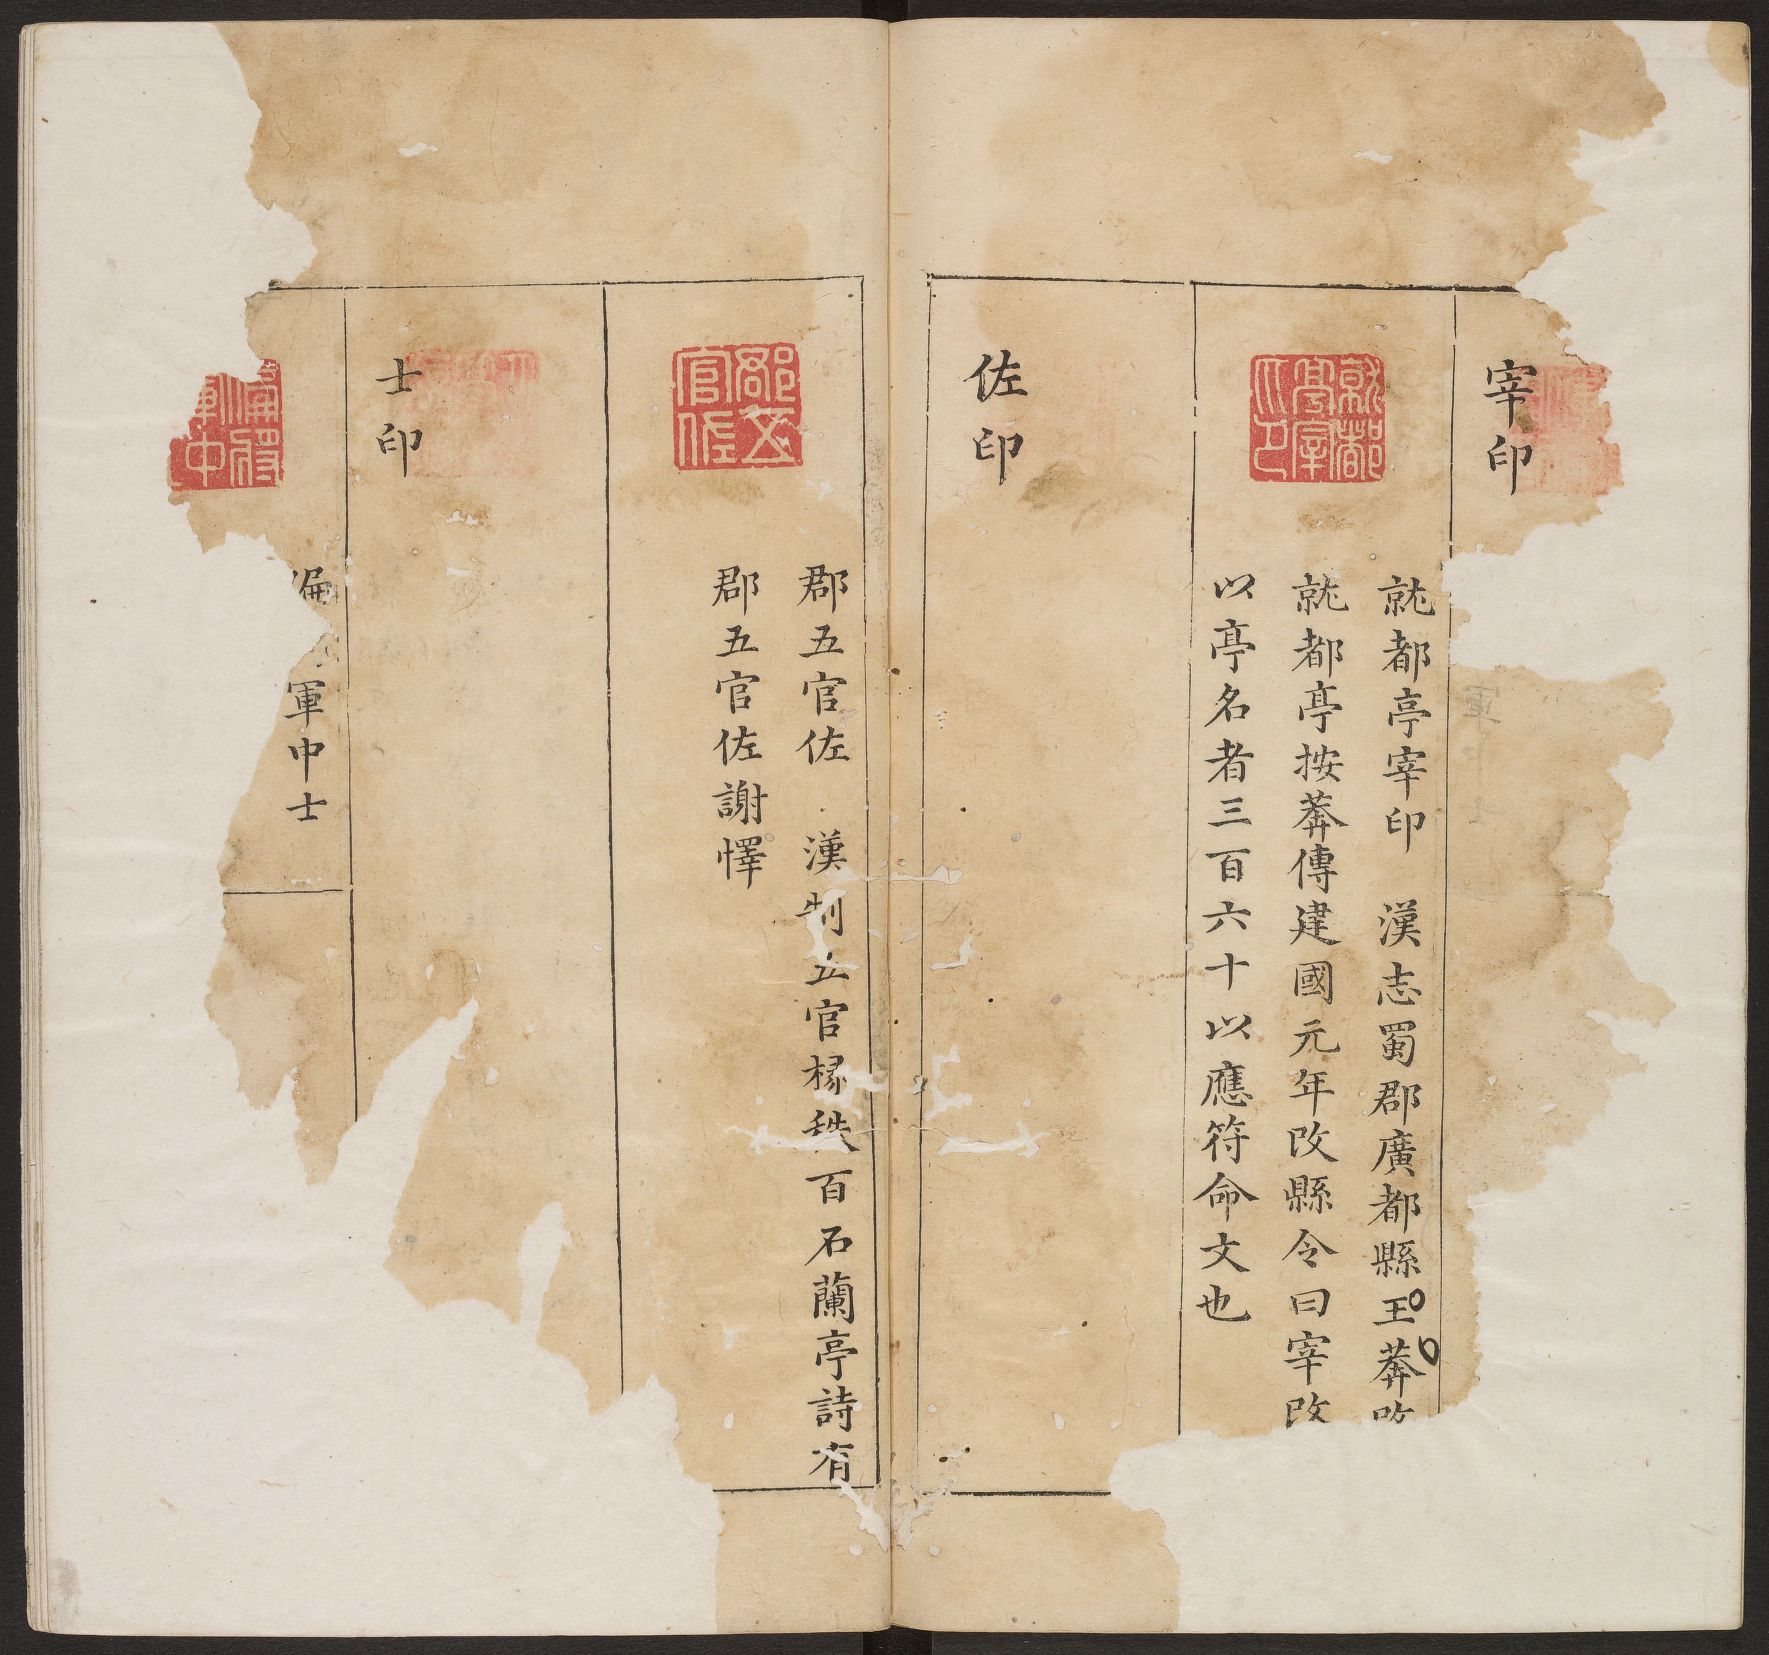 宰印
就都亭宰印　漢志蜀郡廣都縣王莽改
就都亭按莽傳建國元年改縣令曰宰改
以亭名者三百六十以應符命文也
就都亭宰印
佐印
郡五官佐　漢制五官椽秩百石蘭亭詩有
郡五官佐謝懌
郡五官佐
士印
偏　軍中士